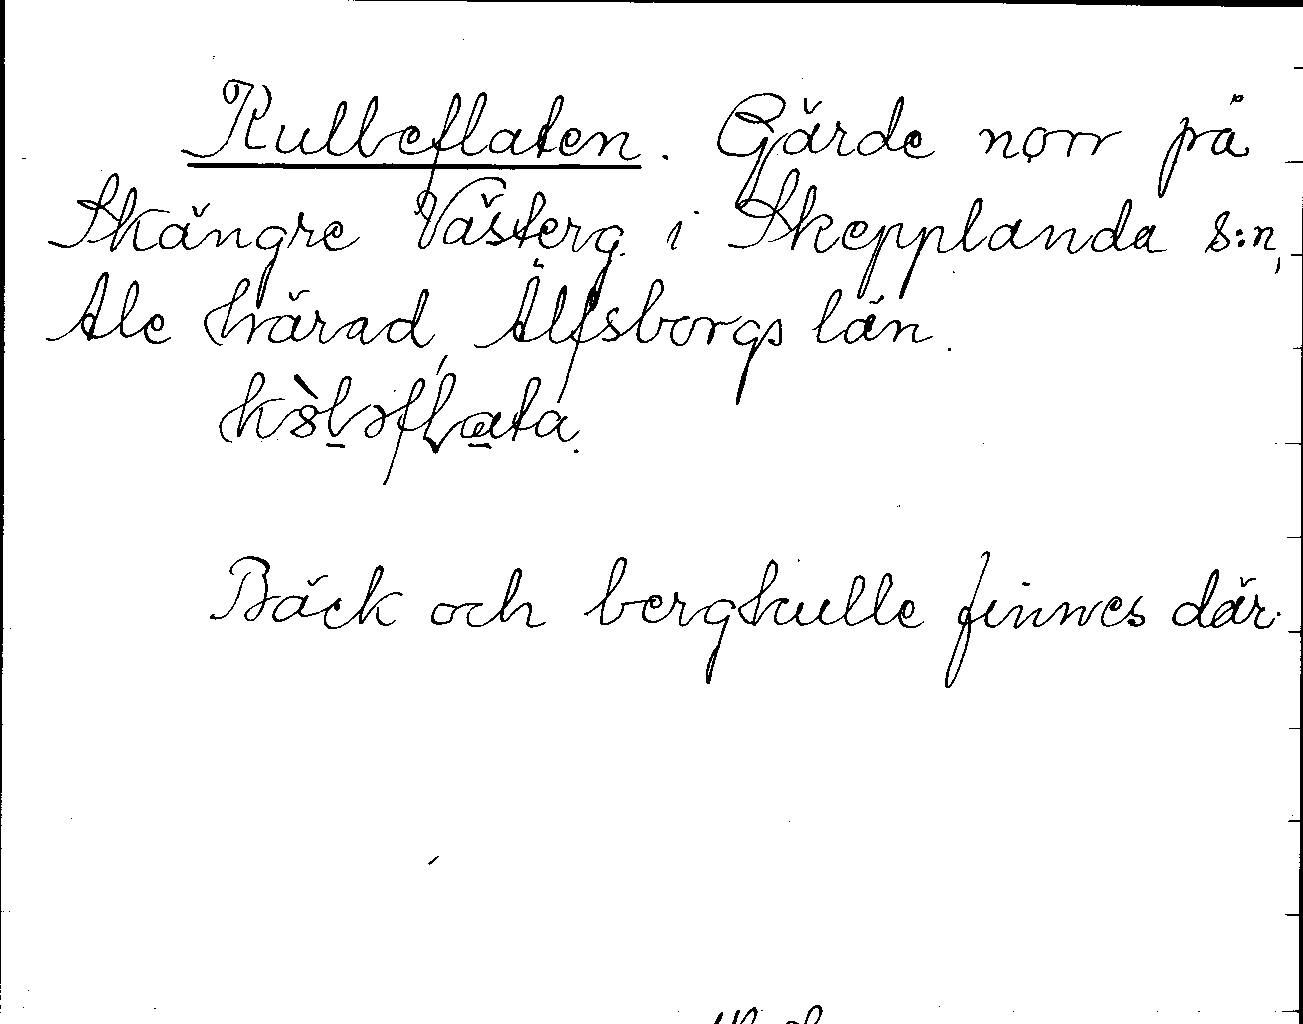 Kulleflaten. Gärde norr på
Skängre Västerg. i Skepplanda s:n,
Ale härad, Älfsborgs län.
Bäck och bergkulle finnes där.